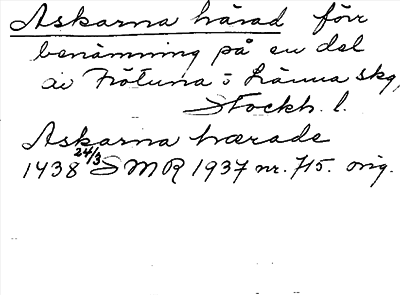 Askarna härad förr
benämning på en del
av Frötuna o Länna skg,
Stockh. l.
Askarna hærade
1438 24/3 SMR 1937 nr. 715. orig.